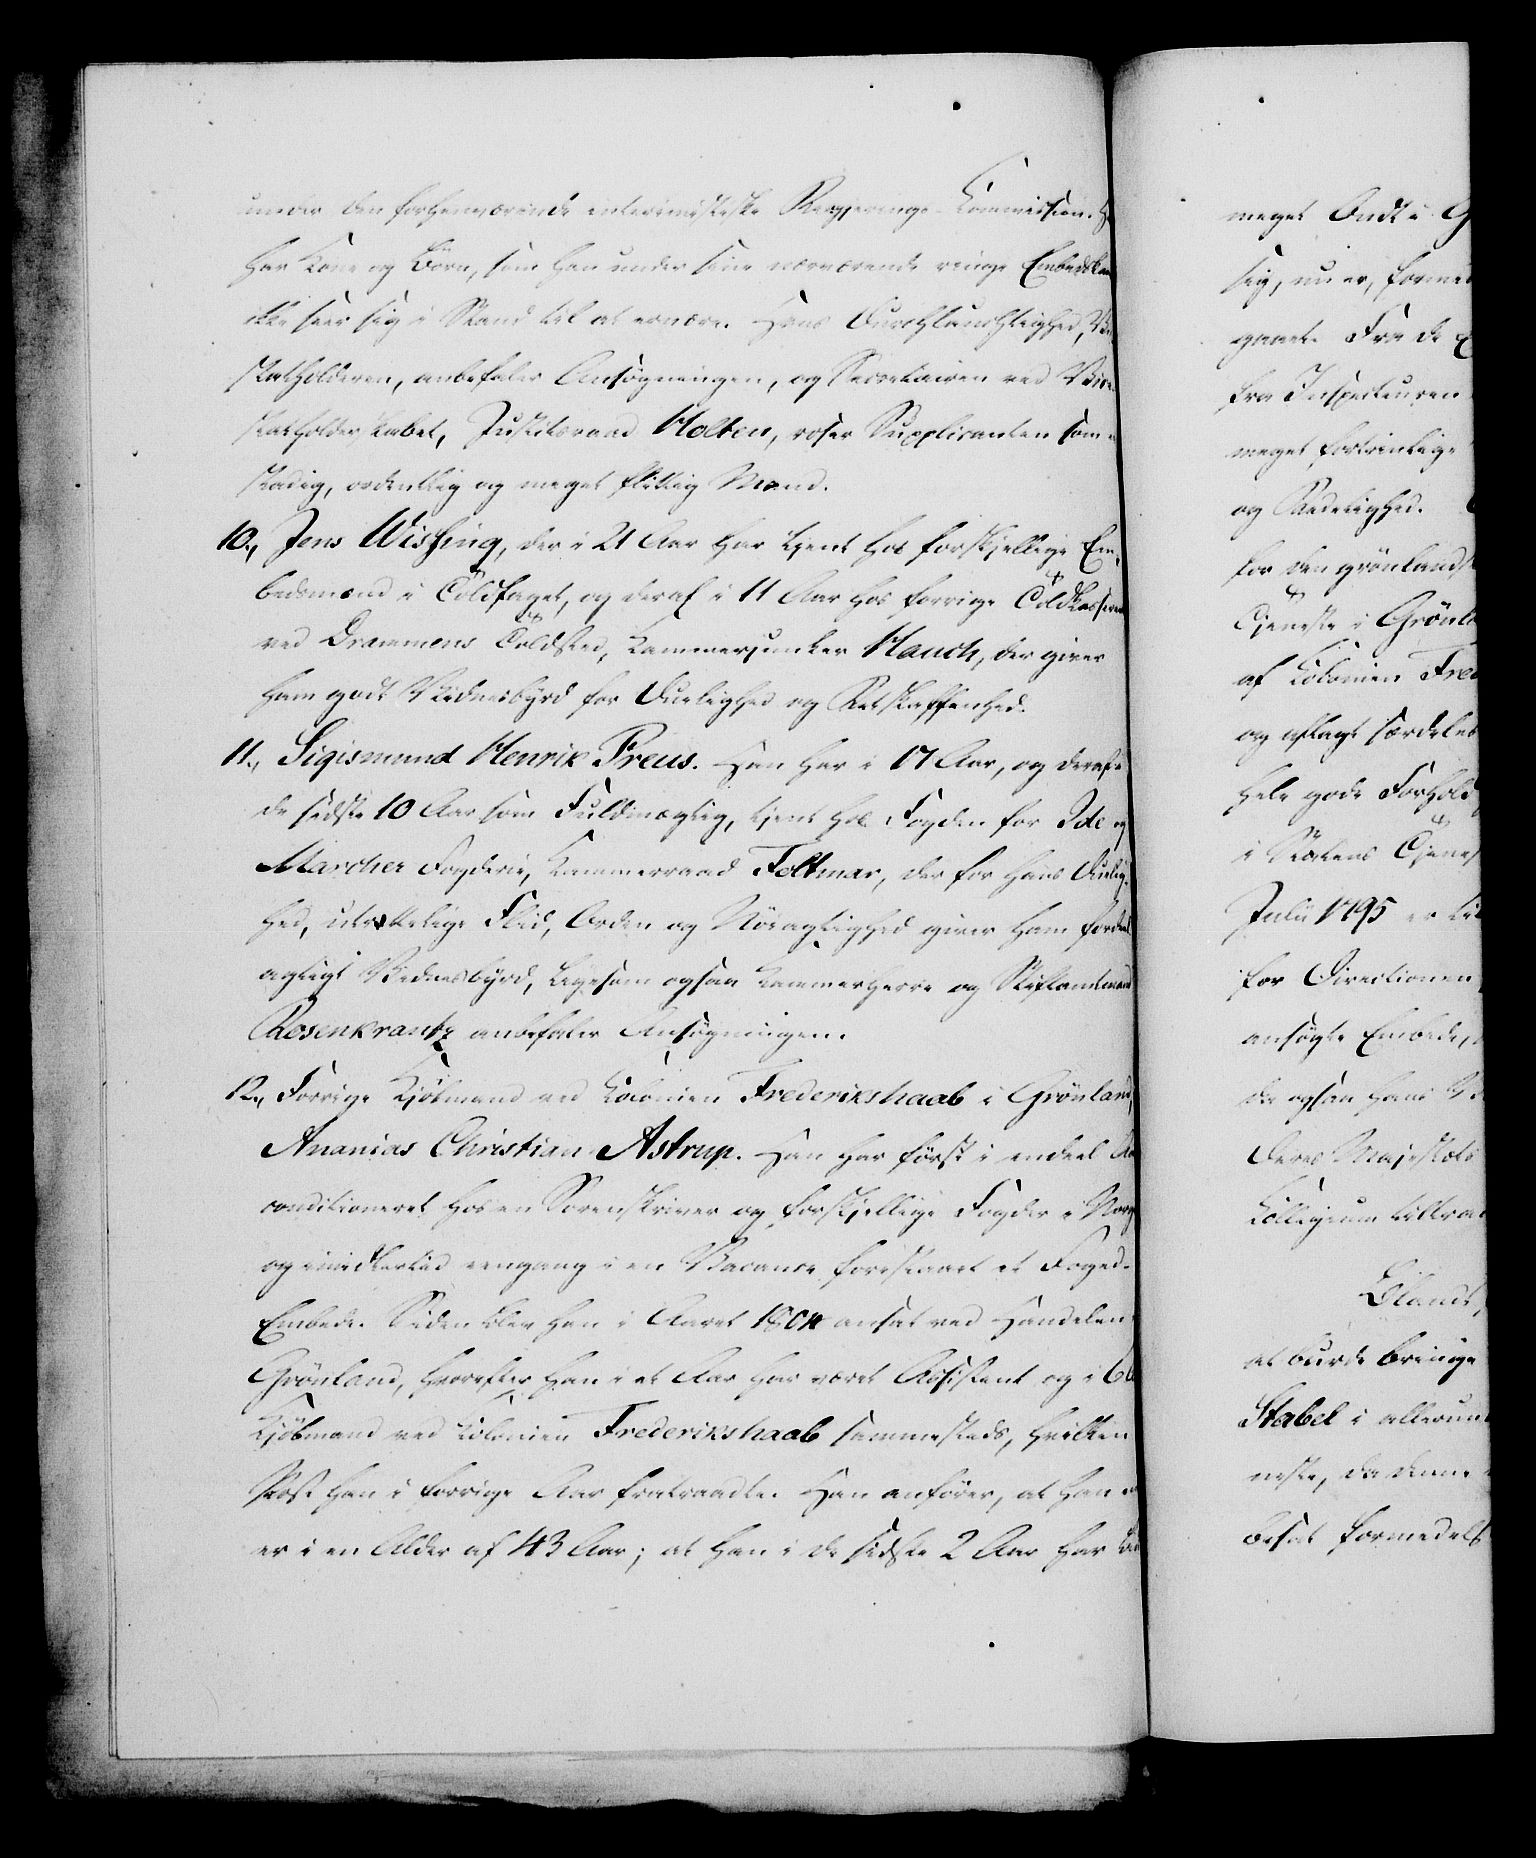 under den forhenværende interimistiske Regjerings-Commission. H
har Kone og Børn, som han under sine nærværende ringe Embeds
ikke seer sig i Stand til at ernære. Hans Durchlauchtighed, Vi
statholderen, anbefaler Ansøgningen, og Secretairen ved Vice-
statholderskabet, Justitsraad Holten, roser Supplicanten som e
stadig, ordentlig og meget flittig Mand.
10., Jens Wissing, der i 21 Aar har tjent hos forskjellige Em-
bedsmænd i Toldfaget, og deraf i 11 Aar hos forrige Toldkasserer
ved Drammens Toldsted, Kammerjunker Hauch, der giver
ham godt Vidnesbyrd for Duelighed og Retskaffenhed.
11., Sigismund Henrik Preus. Han har i 17 Aar, og deraf i
de sidste 10 Aar som Fuldmægtig, tjent hos Fogden for Ide og
Marcher Fogderie, Kammerraad Feltmar, der for hans Duelig-
hed, utrættelige Flid, Orden og Nøiagtighed giver ham fordeel
agtigt Vidnesbyrd, ligesom ogsaa Kammerherre og Stiftamtmand
Rosenkrantz anbefaler Ansøgningen.
12., Forrige Kjøbmand ved Colonien Frederikshaab i Grønland,
Ananias Christian Astrup. Han har først i endeel Aa
conditioneret hos en Sorenskriver og forskjellige Fogder i Norg
og imidlertid eengang i en Vacance forestaaet et Foged-
Embede. Siden blev han i Aaret 1804 ansat ved Handelen
Grønland, hvorefter han i et Aar har været Assistent og i 6 A
Kjøbmand ved Colonien Frederikshaab sammesteds, hvilken
Post han i forrige Aar fratraadte. Han anfører, at han
er i en Alder af 43 Aar; at han i de sidste 2 Aar har
meget Ondt i G
sig, nu er, formed
gaaet. Fra de
fra Inspecteuren
meget fortrinlige
og Redelighed.
for den grønlandsk
Tjeneste i Grønla
af Colonien Fred
og aflagt særdeles
hele gode Forhold
i Statens Tjenes
Julii 1795 er til
for Directionen
ansøgte Embede,
da ogsaa hans V
Deres Majestæts
Collegium tiltra
Ølands,
at burde bringe
Stabel i allerun
neste, da denne
besat formedelst